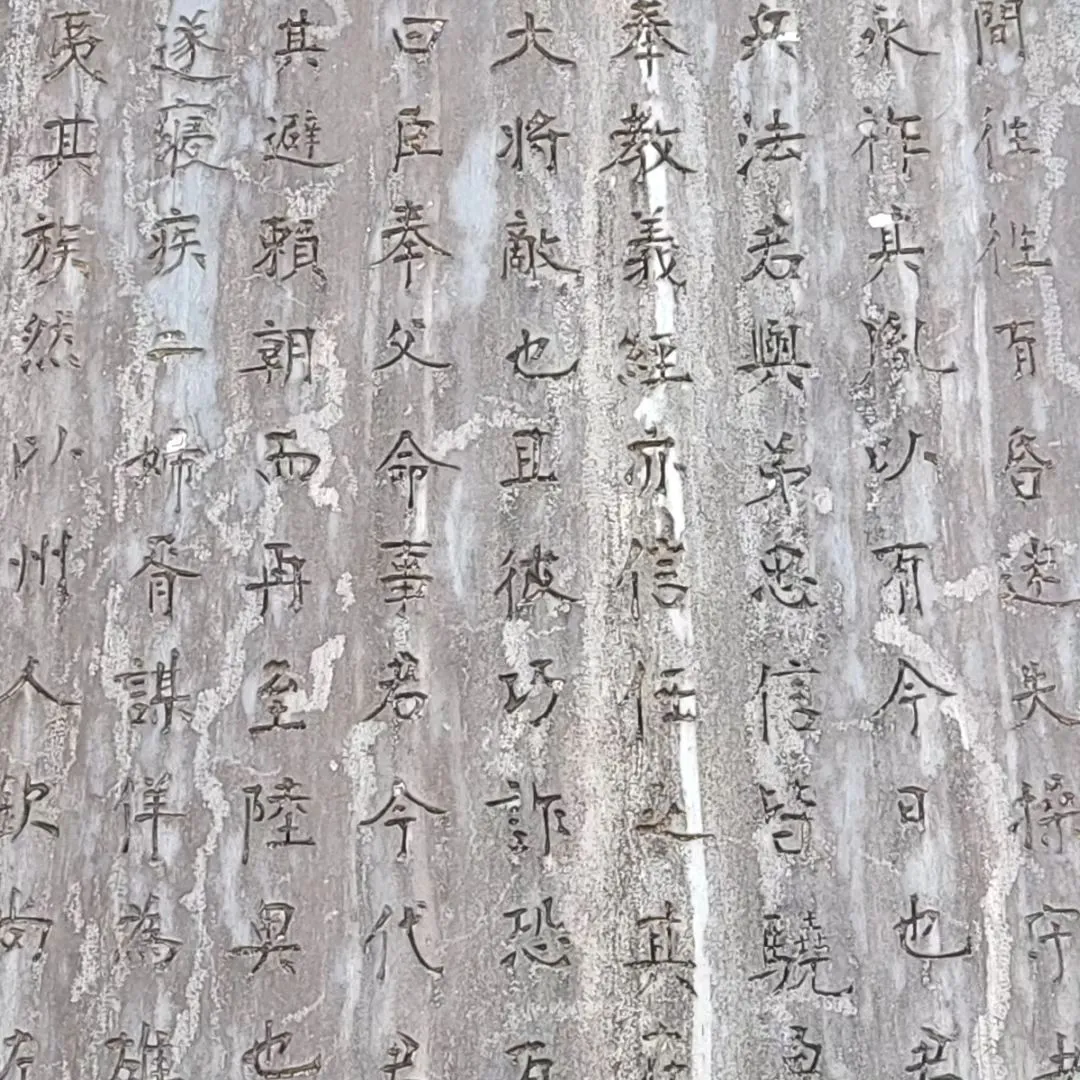 間往往有昏迷失操守
永祚其胤以有今日也君
兵法君與弟忠信皆驍勇
奉教義經亦信任之其
大将敵也且彼巧詐恐万
曰臣奉父命事君今代君
其避賴朝而再至陸奥也
遂寝疾二姉胥謀佯為雄
夷其族然以州人欽